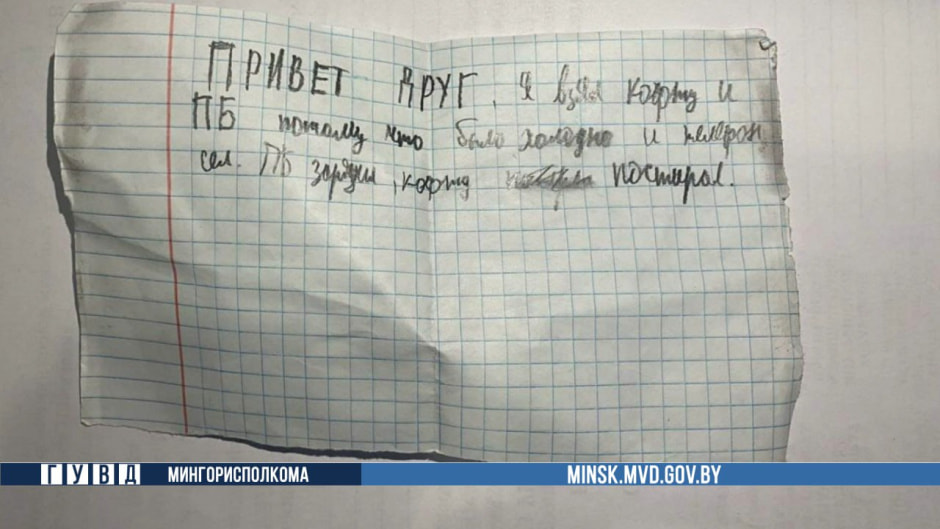 ПРИВЕТ ДРУГ. Я взял кофту и
ПБ потому что было холодно и телефон
сел. ПБ зарядил, кофту постирал.
ГУВД МИНГОРИСПОЛКОМА MINSK.MVD.GOV.BY